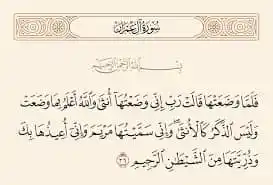 سُورَةُ آلِ عِمْرَان
بِسْمِ اللَّهِ الرَّحْمَٰنِ الرَّحِيمِ
فَلَمَّا وَضَعَتْهَا قَالَتْ رَبِّ إِنِّي وَضَعْتُهَا أُنثَىٰ وَاللَّهُ أَعْلَمُ بِمَا وَضَعَتْ
وَلَيْسَ الذَّكَرُ كَالْأُنثَىٰ ۖ وَإِنِّي سَمَّيْتُهَا مَرْيَمَ وَإِنِّي أُعِيذُهَا بِكَ
وَذُرِّيَّتَهَا مِنَ الشَّيْطَانِ الرَّجِيمِ ٣٦